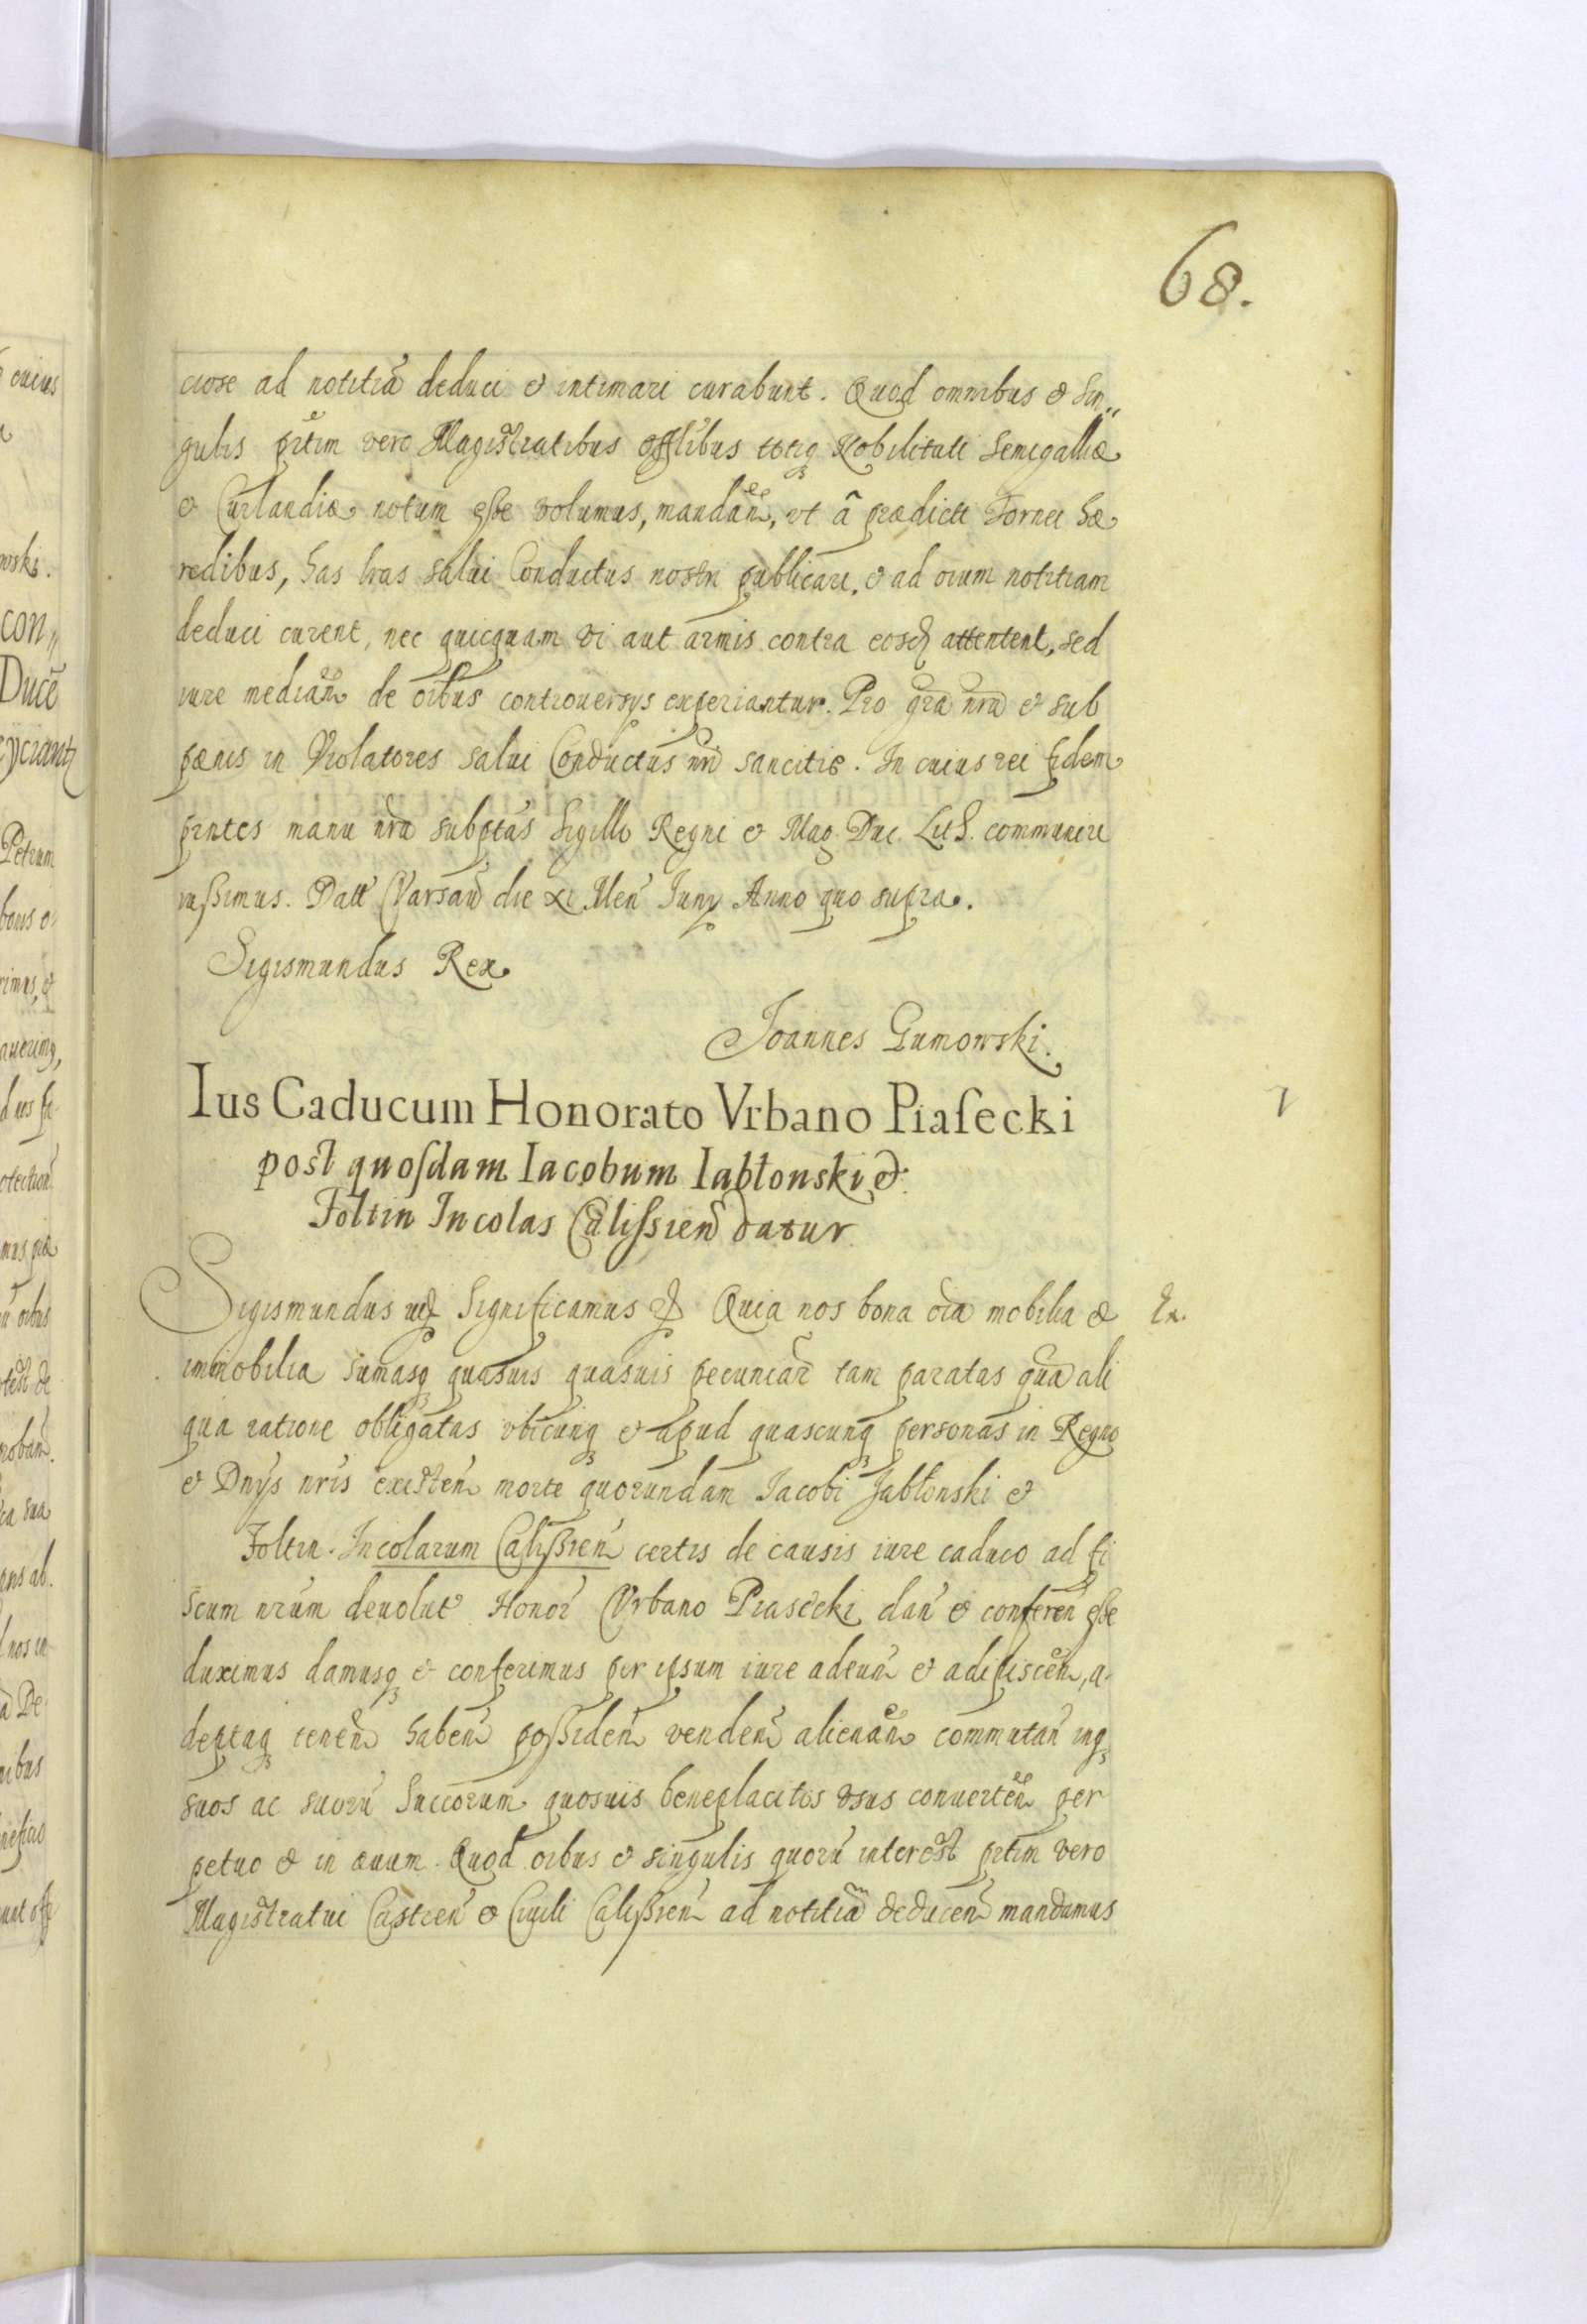 68.
ciose ad notitiā deduci & intimari curabunt. Quod omnibus & sin„
gulis prtim vero Magistratibus offlibus totiq Nobilitati Semigalliæ
& Curlandiæ notum esse volumus, mandān, vt â prædicti Torneu hæ
redibus, has lras salui Conductus nostri publicari, & ad oium notitiam
deduci curent, nec quicquam vi aut armis contra eosd attentent, sed
iure median de oibus controuersys experiantur. Pro gra nra & sub
pænis in Violatores salui Conductus nri sancitis. In cuius rei fidem
pntes manu nra subptas Sigillo Regni & Mag. Duc. Lith. communiri
iussimus. Datt Varsau die xi Men Juny Anno quo supra.
Sigismundus Rex.
Joannes Gumowski.
Ius Caducum Honorato Vrbano Piasecki
post quosdam Iacobum Iabłonski &
Foltin Incolas Calissien datur
Sigismundus etc Significamus etc Quia nos bona oia mobilia &
Ex.
immobilia sumasq quasuis quasuis pecuniar tam paratas qua ali
qua ratione obligatas vbicunq & apud quascunq personas in Regno
& Dnys nris existen morte quorundam Jacobi Jabłonski &
Foltin Incolarum Calissien certis de causis iure caduco ad fi
scum nrum deuolut Honor Vrbano Piasecki dan & conferen esse
duximus damusq & conferimus per ipsum iure adeun & adipiscen, a„
deptaq tenen haben possiden venden alienan commutan inq
suos ac suorū Succorum quosuis beneplacitos vsus conuerten per
petuo & in æuum. Quod oibus & singulis quorū interest prtim vero
Magistratui Castren & Ciuili Calissien ad notitiā deducen mandamus